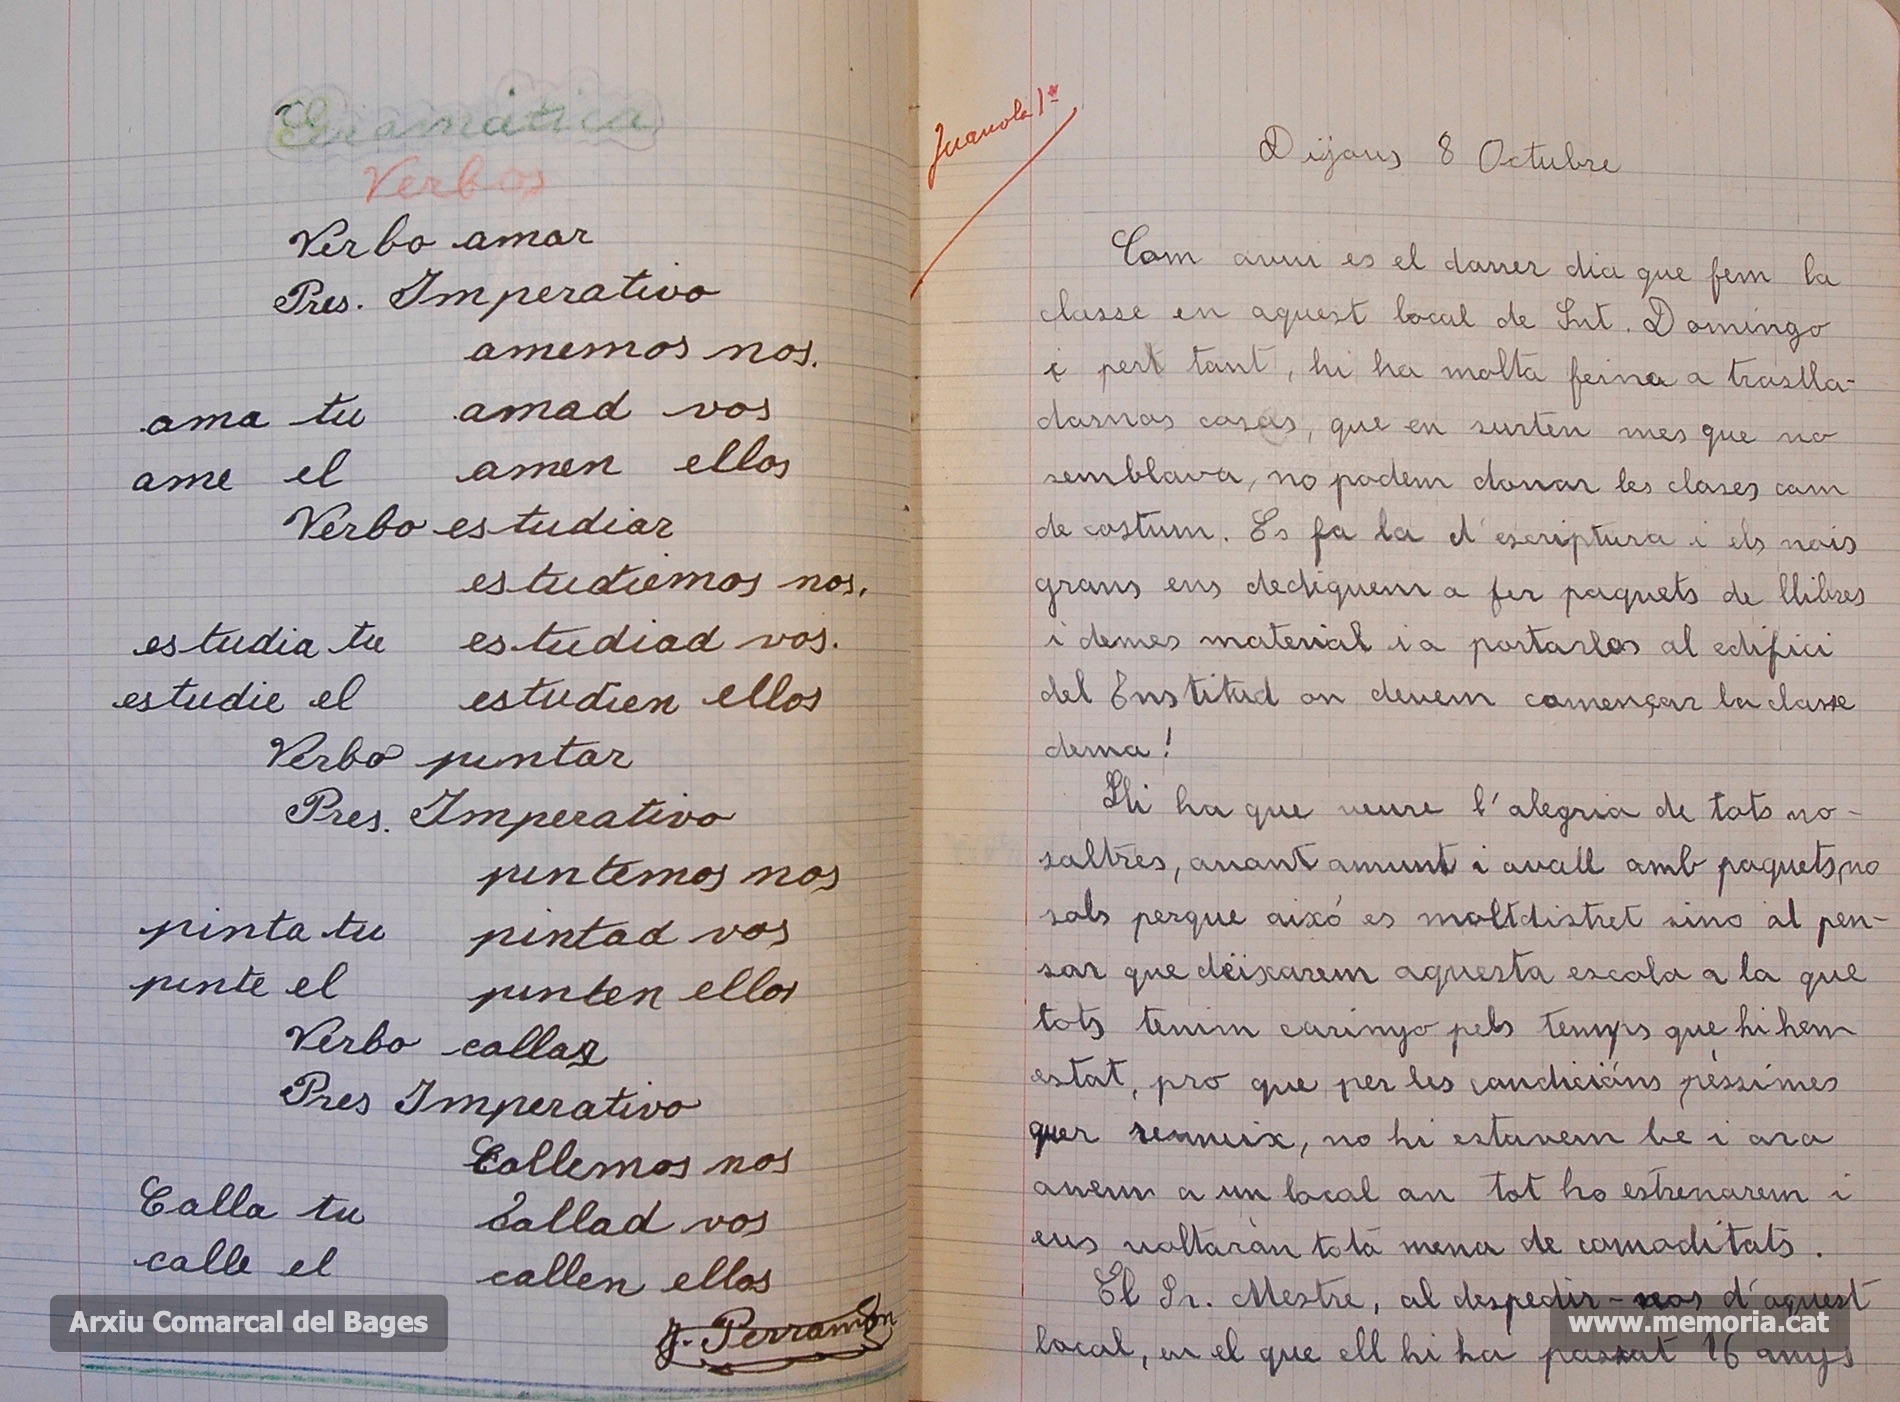 Gramática
Verbos
Verbo amar
Pres. Imperativo
amemos nos.
ama tu amad vos
ame el amen ellos
Verbo estudiar
estudiemos nos.
estudia tu estudiad vos.
estudie el estudien ellos
Verbo pintar
Pres. Imperativo
pintemos nos
pinta tu pintad vos
pinte el pinten ellos
Verbo callar
Pres Imperativo
Callemos nos
Calla tu Callad vos
calle el callen ellos
J. Perramón
Arxiu Comarcal del Bages
Juanola 1er
Dijous 8 Octubre
Com avui es el darrer dia que fem la
classe en aquest local de Snt. Domingo
i pert tant, hi ha molta feina a traslla-
darnos coses, que en surten mes que no
semblava, no podem donar les clases com
de costum. Es fa la d'escriptura i els nois
grans ens dediquem a fer paquets de llibres
i demes material i a portarlos al edifici
del Enstitud on devem començar la classe
dema!
Hi ha que veure l'alegria de tots no-
saltres, avant amunt i avall amb paquets, no
sols perque aixó es molt distret sino al pen-
sar que deixarem aquesta escola a la que
tots tenim carinyo pels temps que hi hem
estat, pro que per les condicións péssimes
quer reuneix, no hi estavem be i ara
anem a un local on tot ho estrenarem i
ens voltaràn totá mena de comoditats.
El Sr. Mestre, al despedir-nos d'aquest
local, en el que ell hi ha passat 16 anys
www.memoria.cat